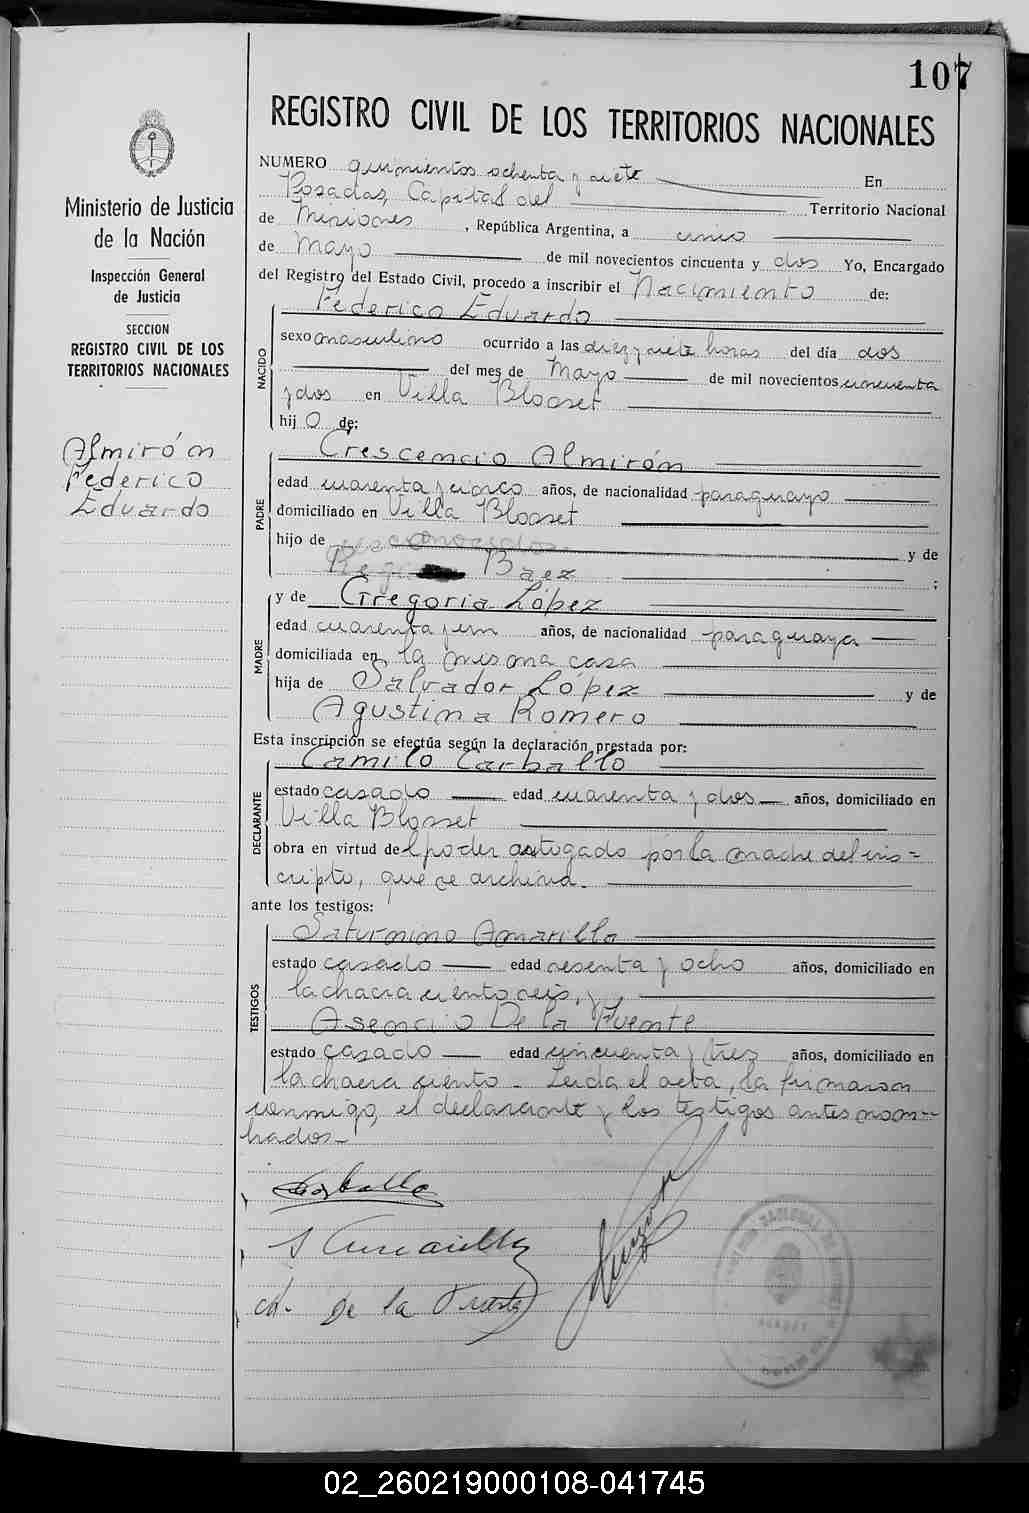 107
REGISTRO CIVIL DE LOS TERRITORIOS NACIONALES
Ministerio de Justicia
de la Nación
Inspección General
de Justicia
SECCION
REGISTRO CIVIL DE LOS
TERRITORIOS NACIONALES
Almirón
Federico
Eduardo
NUMERO quinientos ochenta y siete En
Posadas, Capital del Territorio Nacional
de Misiones, República Argentina, a cinco
de Mayo de mil novecientos cincuenta y dos Yo, Encargado
del Registro del Estado Civil, procedo a inscribir el Nacimiento de:
Federico Eduardo
NACIDO
sexo masculino ocurrido a las diez y siete horas del día dos
del mes de Mayo de mil novecientos cincuenta
y dos en Villa Blosset
hijo de:
PADRE
Crescencio Almirón
edad cuarenta y cinco años, de nacionalidad paraguayo
domiciliado en Villa Blosset
hijo de y de
Báez ;
MADRE
y de Gregoria López
edad cuarenta y un años, de nacionalidad paraguaya
domiciliada en la misma casa
hija de Salvador López y de
Agustina Romero
Esta inscripción se efectúa según la declaración prestada por:
DECLARANTE
Camilo Carballo
estado casado edad cuarenta y dos años, domiciliado en
Villa Blosset
obra en virtud del poder otorgado por la madre del ins=
cripto, que se archiva.
ante los testigos:
TESTIGOS
Saturnino Amarilla
estado casado edad sesenta y ocho años, domiciliado en
la chacra ciento seis, y
Asencio De la Fuente
estado casado edad cincuenta y tres años, domiciliado en
la chacra ciento - Leida el acta, la firmaron
conmigo, el declarante y los testigos antes nom=
brados.-
Carballo
S Amarilla
A. De la Fuente
02_260219000108-041745